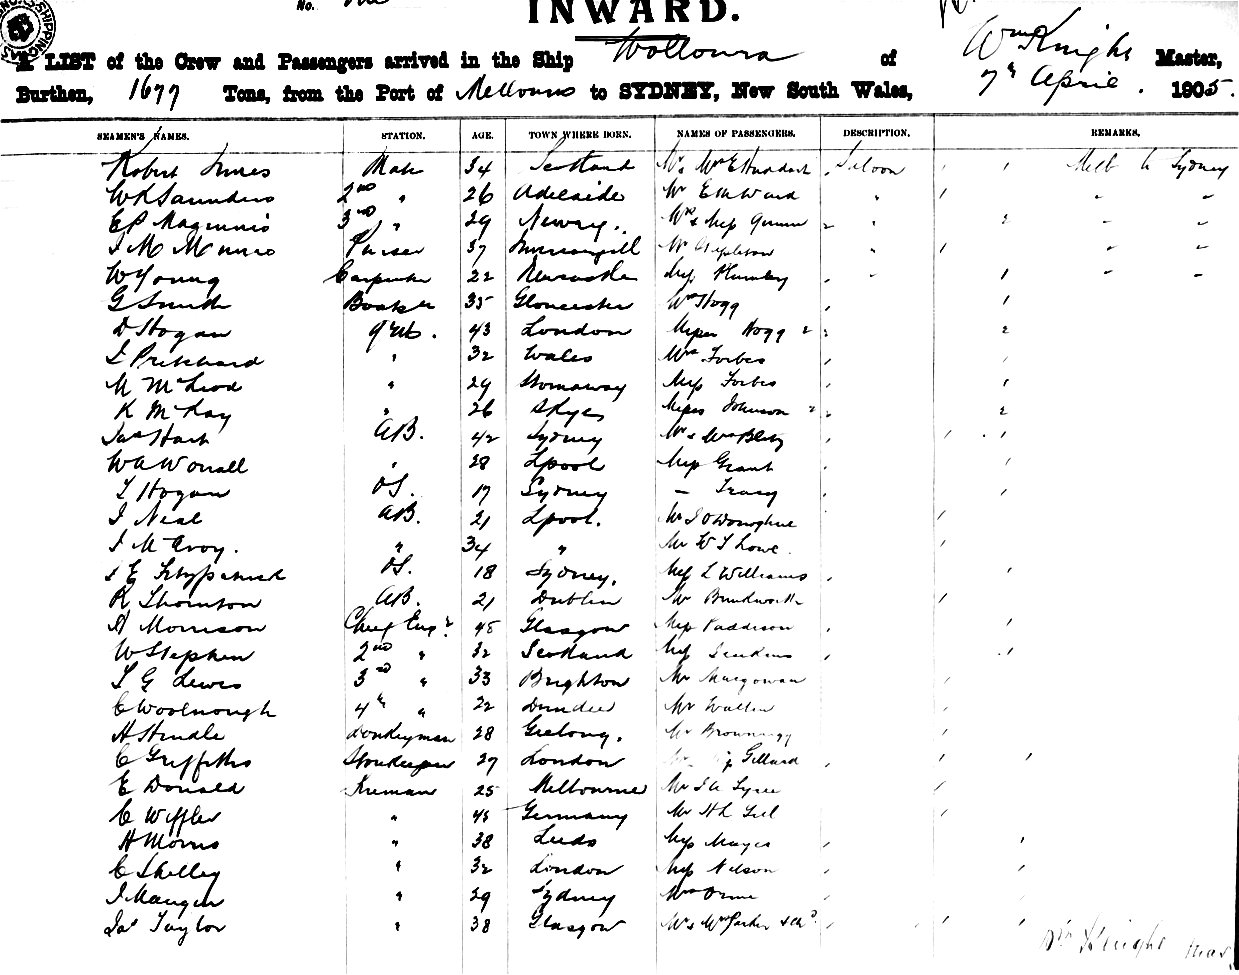 No.
INWARD.
A LIST of the Crew and Passengers arrived in the Ship Wolloura of Wm Knight Master,
Burthen, 1677 Tons, from the Port of Melbourne to SYDNEY, New South Wales, 7th April. 1905.
SEAMEN'S NAMES. STATION. AGE. TOWN WHERE BORN. NAMES OF PASSENGERS. DESCRIPTION. REMARKS.
Robert Innes Mate 34 Scotland Mr & Mrs E Haddock Saloon Melb to Sydney
W R Saunders 2nd " 26 Adelaide Mr E M Ward " " "
E P Maginnis 3rd " 29 Newry. " " "
J M Munro Purser 37 Mr Stapleton " " "
W Young Carpenter 22 Newcastle Miss Plumley " " "
G Smith 35 Gloucester Mrs Hogg
D Hogan 43 London Misses Hogg 2
Pritchard " 32 Wales Mrs Forbes
M McLeod " 29 Stornaway Miss Forbes
K McKay " 26 Skye Misses Johnson 2
Jas Hart AB. 42 Sydney Mr & Mrs
W A Worrall " 28 Lpool Miss Grant
T Hogan OS. 17 Sydney - Tracy
J Neal AB. 21 Lpool. Mr J O'Donoghue
J McEvoy. " 34 " Mr W J Lowe.
J E Fitzpatrick OS. 18 Sydney. Miss L Williams
R Thornton AB. 21 Dublin Mr
A Morrison Chief Engr 45 Glasgow Miss Paddison
W Stephen 2nd " 32 Scotland Miss
T G Lewis 3rd " 33 Brighton Mr Macgowan
C Woolnough 4th " 22 Dundee Mr
H Hindle Donkeyman 28 Geelong. Mr Brownrigg
C Griffiths Storekeeper 27 London Gillard
E Donald Fireman 25 Melbourne Mr
C Wiffler " 45 Germany Mr
H Morris " 38 Leeds Miss Mayes
C Shelley " 32 London Miss Nelson
J Mangin " 29 Sydney Mrs Orme
Jas Taylor " 38 Glasgow Mr & Mrs Parker & Chd
Wm Knight Mas